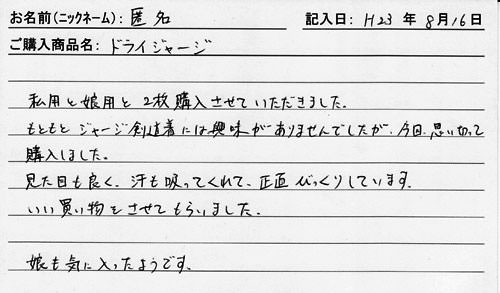 お名前(ニックネーム): 匿名 記入日: H23 年 8月16日
ご購入商品名: ドライジャージ
私用と娘用と2枚購入させていただきました。
もともとジャージ剣道着には興味がありませんでしたが、今回、思い切って
購入しました。
見た目も良く、汗も吸ってくれて、正直びっくりしています。
いい買い物をさせてもらいました。
娘も気に入ったようです。